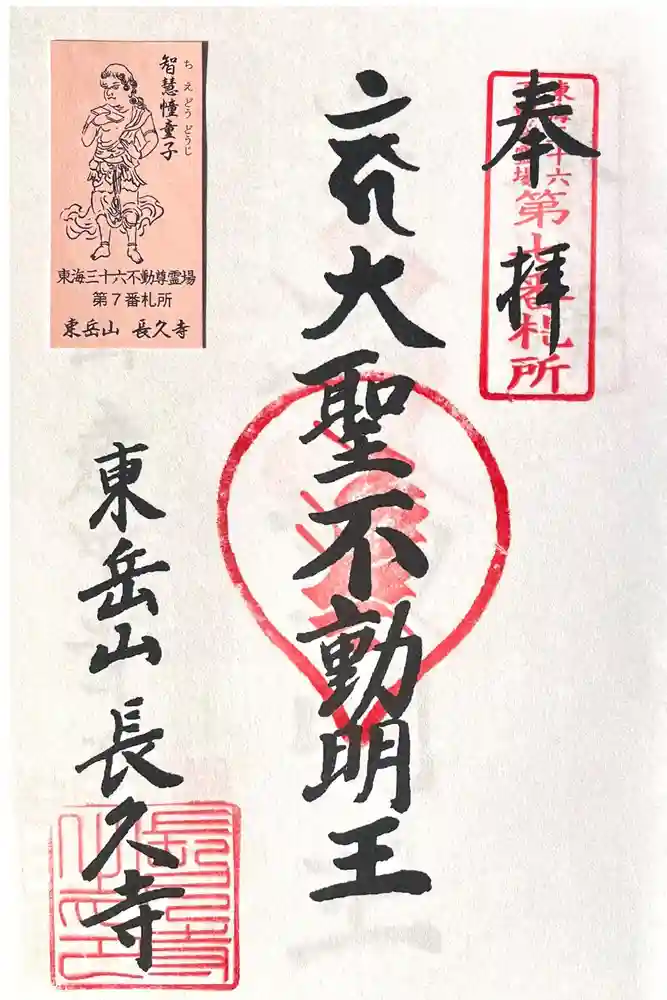 奉拝
東海三十六
不動尊霊場
第七番札所
大聖不動明王
東岳山 長久寺
智慧幢童子
ちえどうどうじ
東海三十六不動尊霊場
第7番札所
東岳山 長久寺